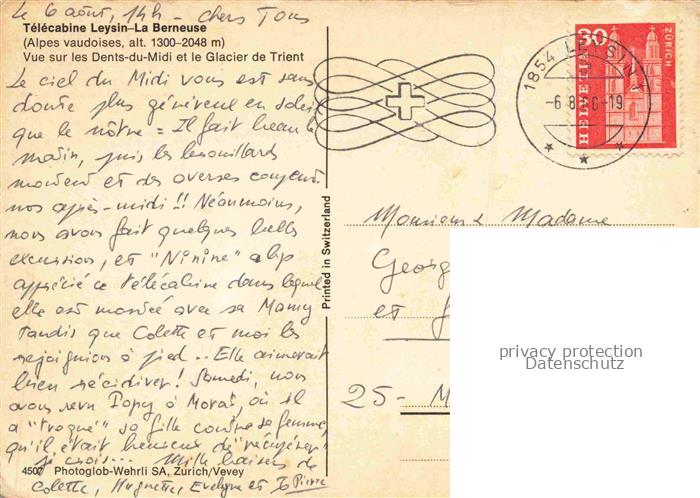 Le 6 août, 14h - chers Tous
Télécabine Leysin–La Berneuse
(Alpes vaudoises, alt. 1300–2048 m)
Vue sur les Dents-du-Midi et le Glacier de Trient
Le ciel du Midi vous est sans
doute plus généreux en soleil
que le nôtre = Il fait beau le
matin, puis les brouillards
montent et des averses
nos après-midi !! Néanmoins,
nous avons fait quelques belles
excursion, et "Ninine" a bp
apprécié ce télécabine dans lequel
elle est montée avec sa Mamy
tandis que Colette et moi les
rejoignions à pied .. Elle aimerait
bien récidiver ! Samedi, nous
avons revu Papy à Morat, où il
a "troqué" sa fille contre sa femme,
qu'il était heureux de "récupérer"
je crois... Mille baisers de
4507 Photoglob-Wehrli SA, Zürich/Vevey
Colette, Huguette, Evelyne et Pierre
Printed in Switzerland
1854 LEYSIN
-6.8. 6-19
30
HELVETIA
ZÜRICH
Monsieur & Madame
Georg
et
25- M
privacy protection
Datenschutz